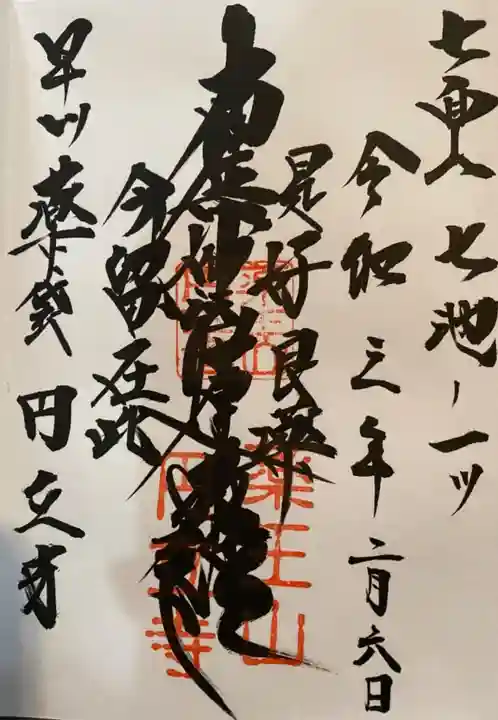 七面山 七池ノ一ツ
令和三年二月六日
是好良薬
南無妙法蓮華経
今留在此
早川薬袋 円立寺
薬王山
円立寺